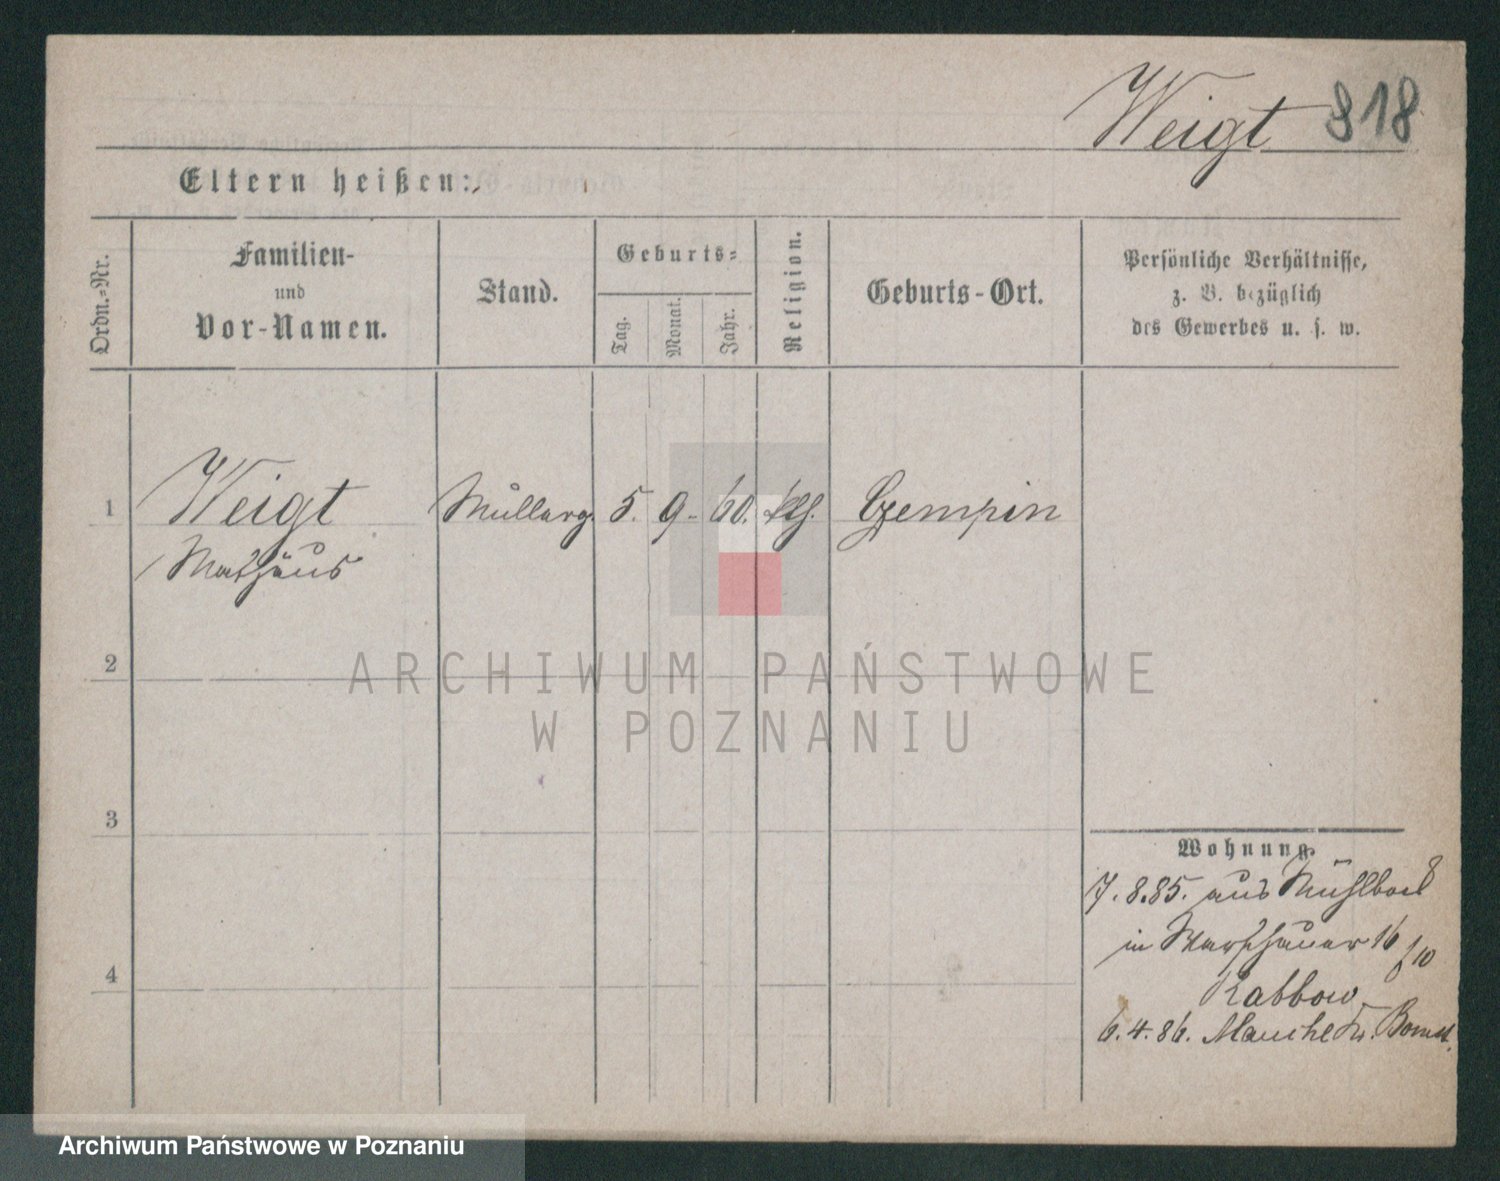 Weigt 818
Eltern heißen:
Ordn.-Nr.
Familien-
und
Vor-Namen.
Stand.
Geburts-
Tag.
Monat.
Jahr.
Religion.
Geburts-Ort.
Persönliche Verhältnisse,
z. B. bezüglich
des Gewerbes u. s. w.
1 Weigt Müllerg. 5. 9. 60. kth. Czempin
Mathäus
2
ARCHIWUM PAŃSTWOWE
W POZNANIU
3
Wohnung.
7.8.85. aus
in Warschauer 16
Rabbow
4
6.4.86. Kr. Bomst.
Archiwum Państwowe w Poznaniu